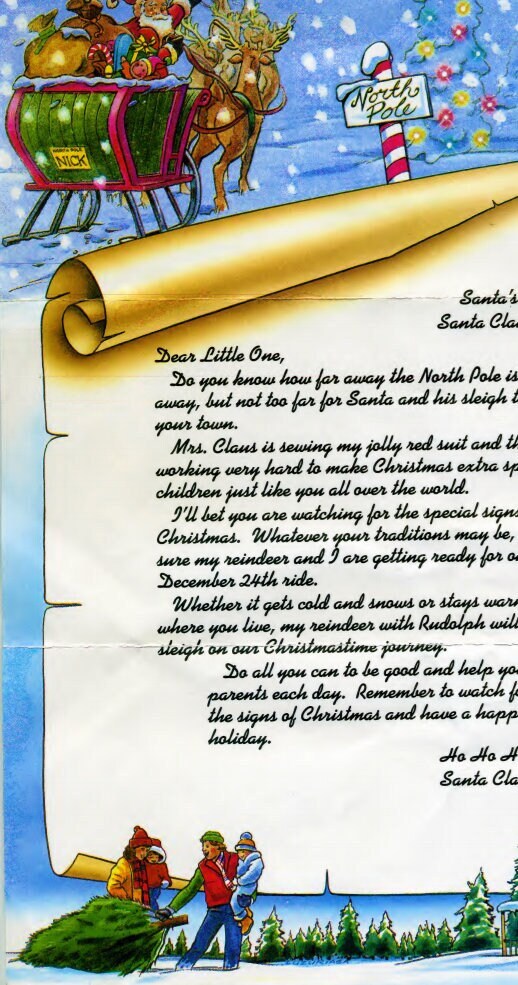 North
Pole
NORTH POLE
NICK
Santa's
Santa
Dear Little One,
Do you know how far away the North Pole is
away, but not too far for Santa and his sleigh
your town.
Mrs. Claus is sewing my jolly red suit and
working very hard to make Christmas extra
children just like you all over the world.
I'll bet you are watching for the special signs
Christmas. Whatever your traditions may be,
sure my reindeer and I are getting ready for
December 24th ride.
Whether it gets cold and snows or stays
where you live, my reindeer with Rudolph will
sleigh on our Christmastime journey.
Do all you can to be good and help
parents each day. Remember to watch
the signs of Christmas and have a
holiday.
Ho Ho
Santa